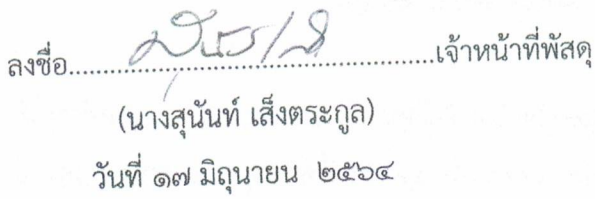 ลงชื่อ................................................เจ้าหน้าที่พัสดุ
(นางสุนันท์ เส็งตระกูล)
วันที่ ๑๗ มิถุนายน ๒๕๖๔